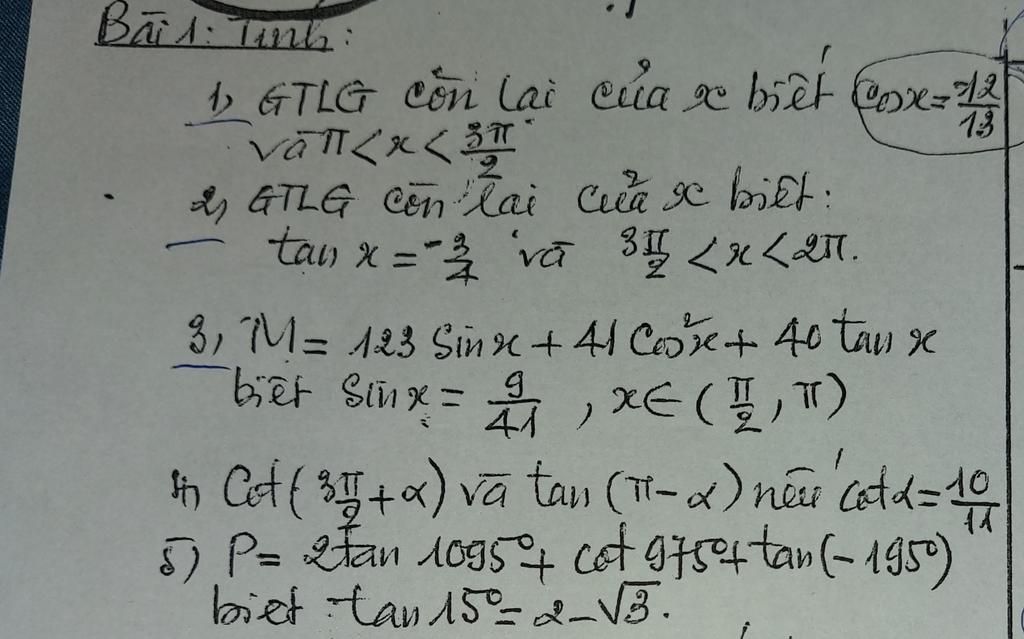 Bài 1: Tính:
1, GTLG còn lại của x biết cosx = -12/13
và π < x < 3π/2
2, GTLG còn lại của x biết:
tan x = -3/4 và 3π/2 < x < 2π.
3, M = 123 sinx + 41 cos²x + 40 tan x
biết sinx = 9/41 , x ∈ (π/2, π)
4, Cot(3π/2 + α) và tan (π - α) nếu cotα = 10/11
5) P = 2tan 1095° + cot 975° + tan(-195°)
biết tan 15° = 2 - √3.